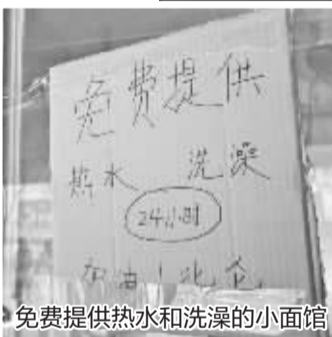 免费提供
热水 洗澡
24小时
加油！北仑
免费提供热水和洗澡的小面馆